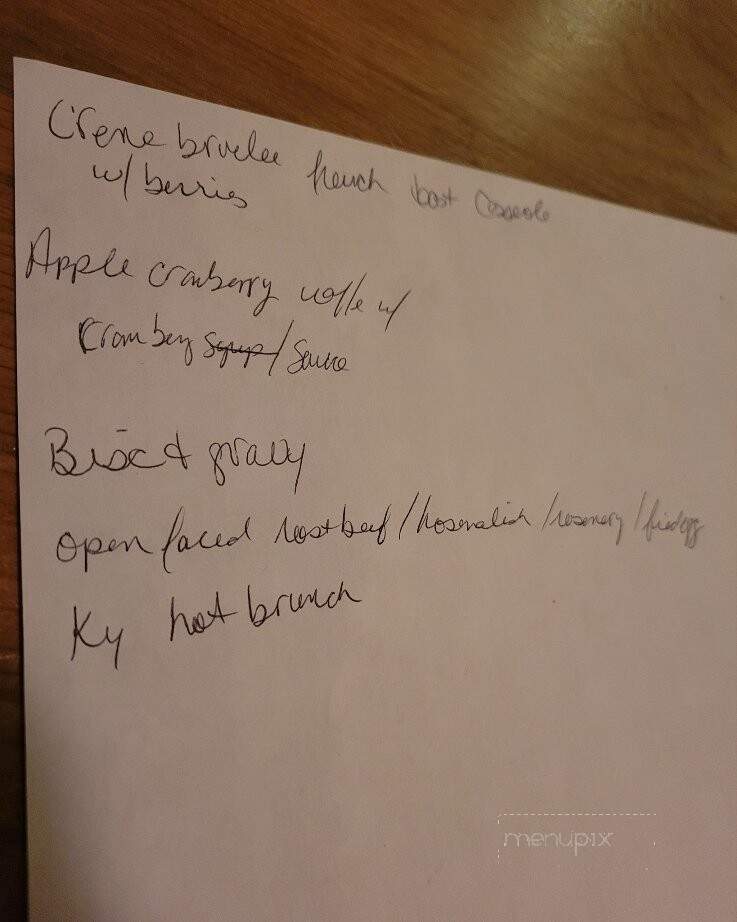 Creme brulee french toast Casserole
w/ berries
Apple cranberry waffle w/
Cranberry syrup/Sauce
Bisc & gravy
open faced roast beef/horseradish/rosemary/fried egg
Ky hot brunch
menupix